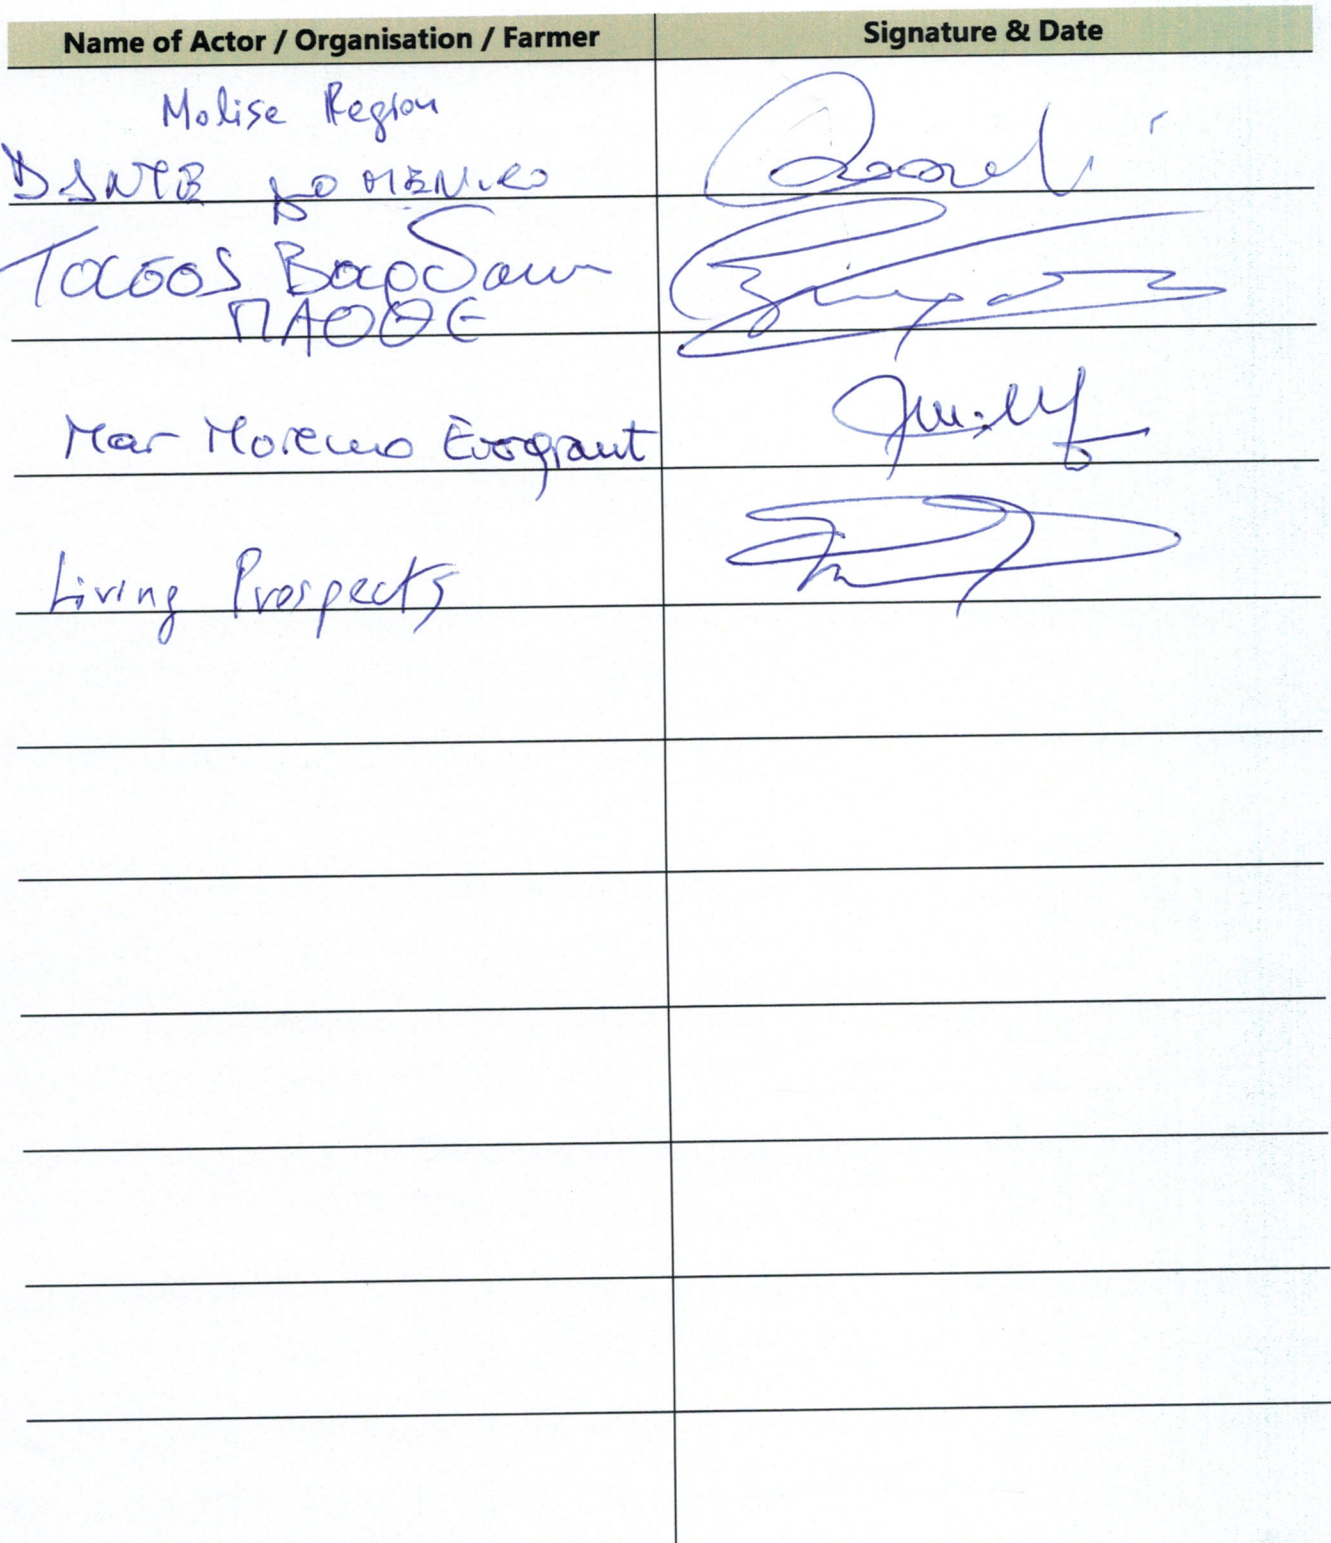 Name of Actor / Organisation / Farmer
Signature & Date
Molise Region
DANTE DOMENICO
Τάσος Βαρδακ
ΠΑΟΘΕ
Mar Moreno Evograut
Living Prospects